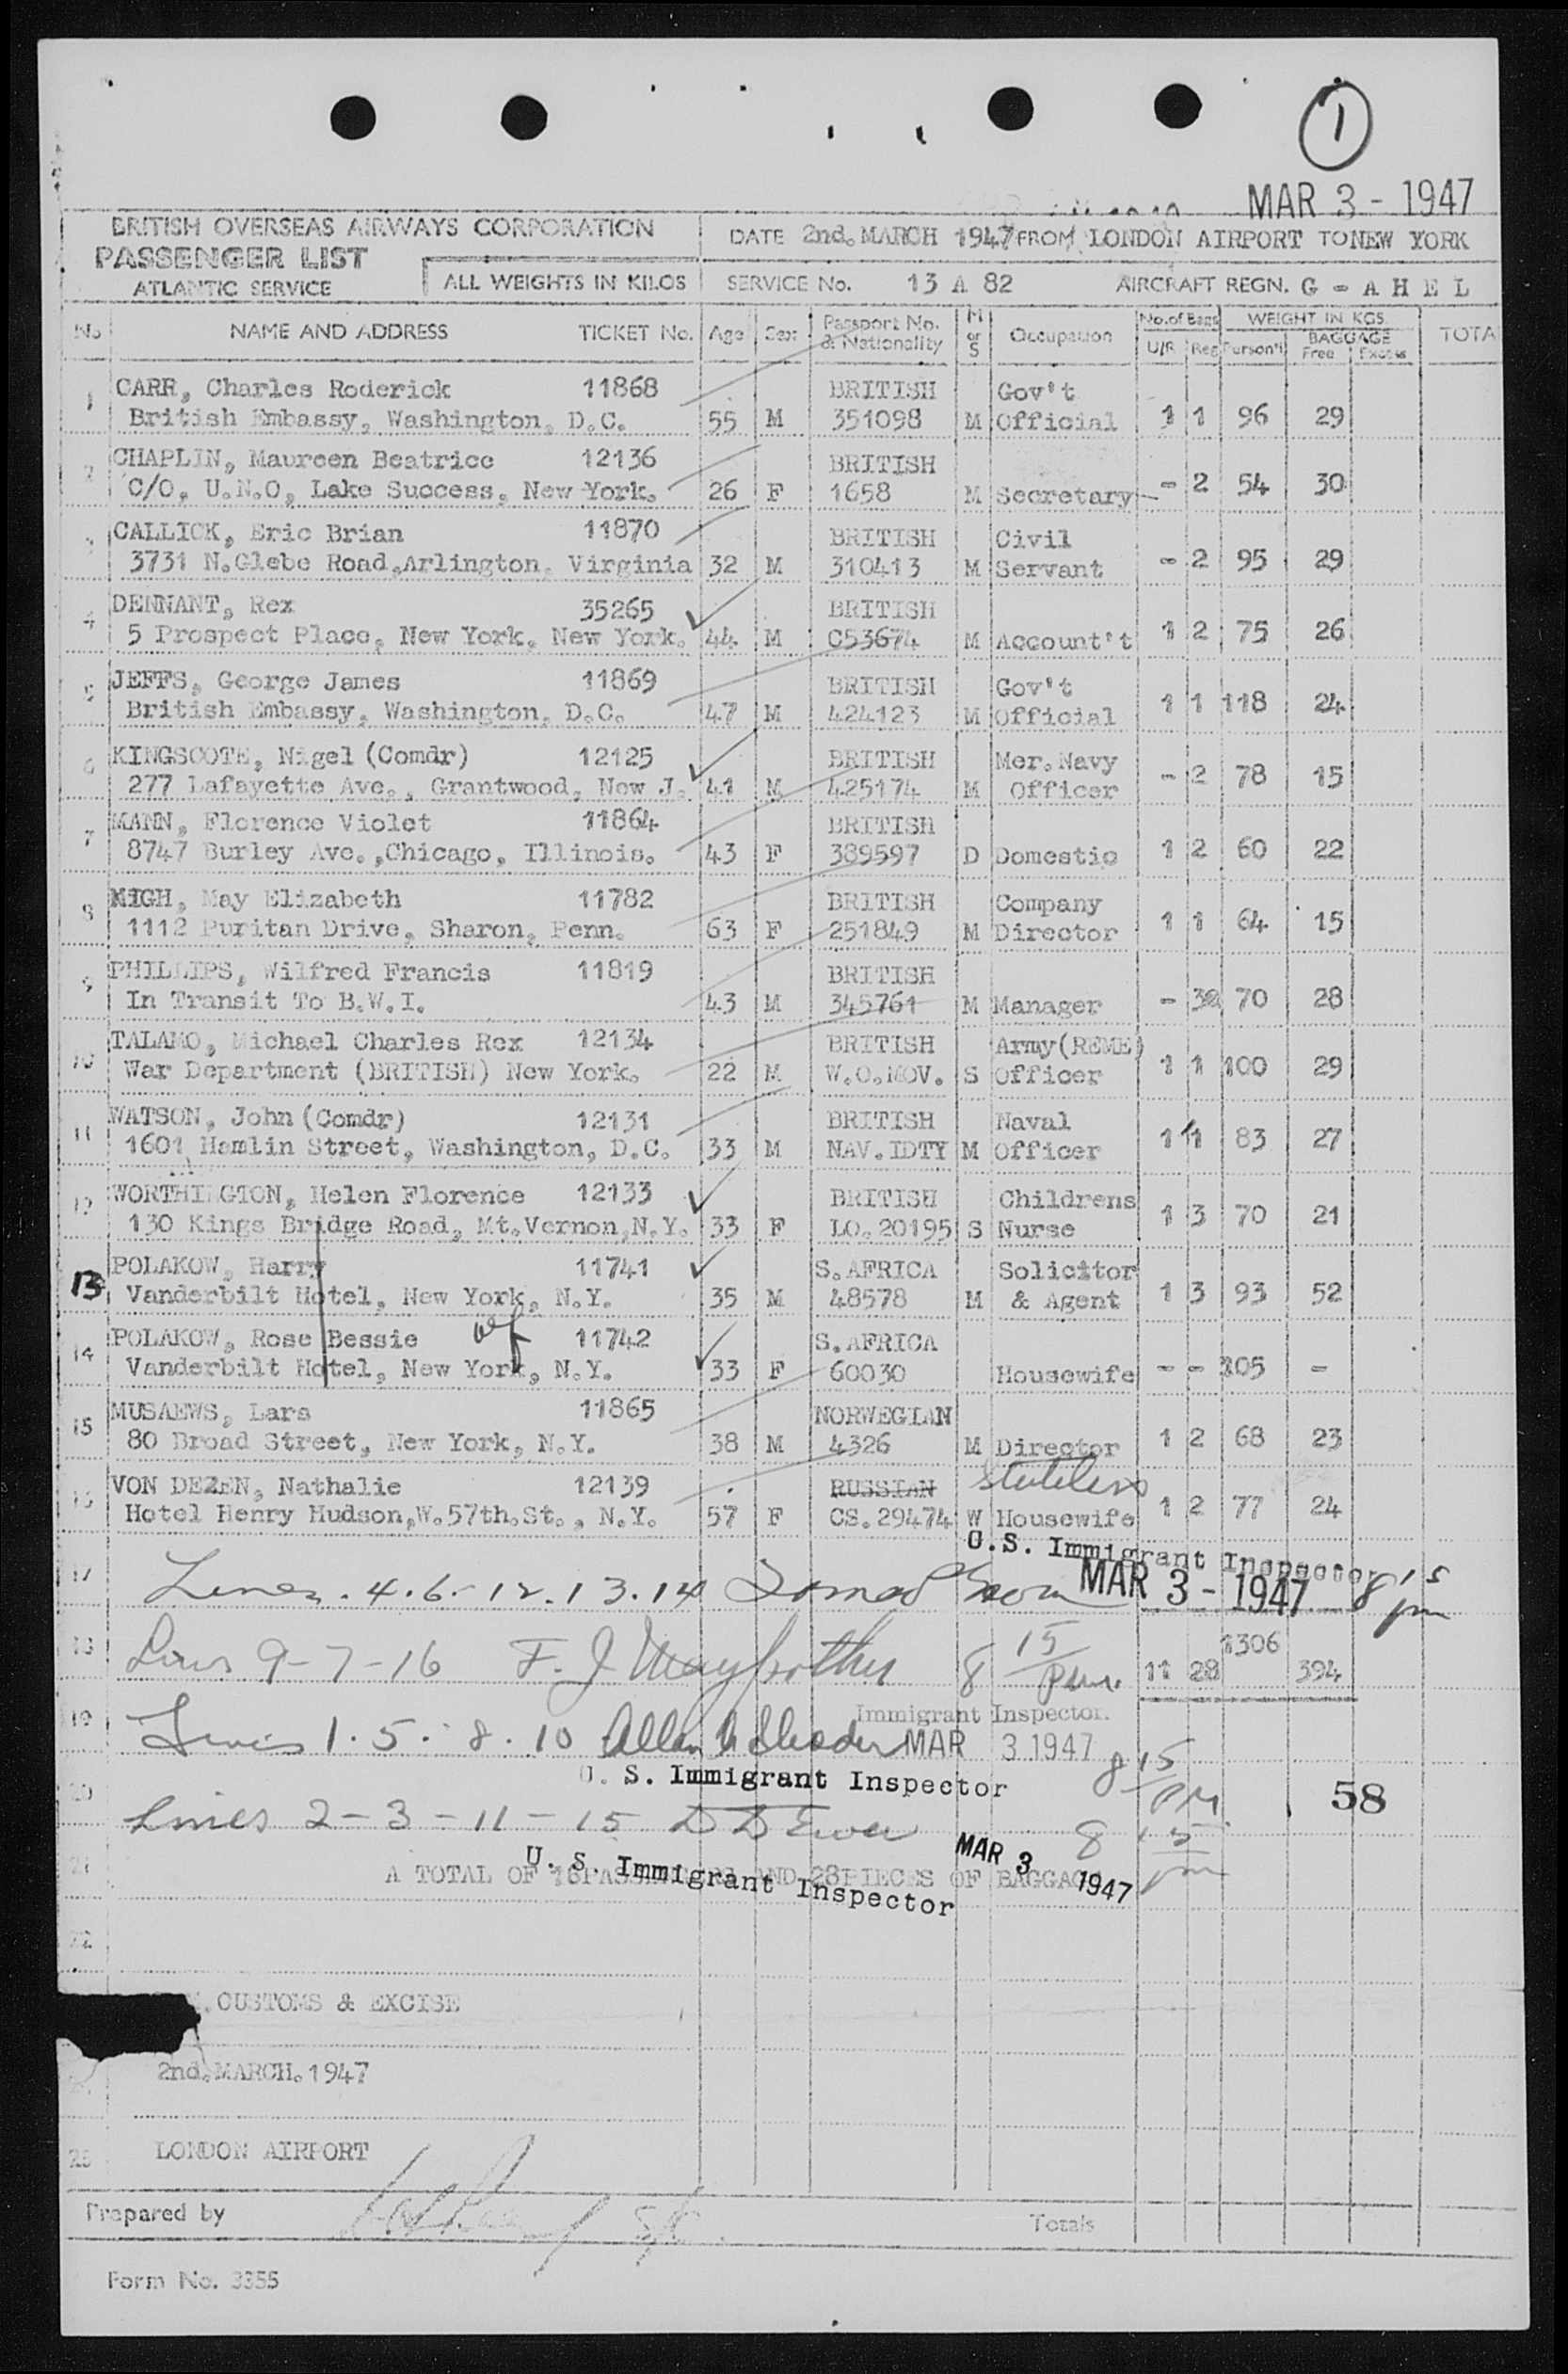 1
MAR 3 - 1947
BRITISH OVERSEAS AIRWAYS CORPORATION
PASSENGER LIST
ATLANTIC SERVICE
ALL WEIGHTS IN KILOS
DATE 2nd. MARCH 1947 FROM LONDON AIRPORT TO NEW YORK
SERVICE No. 13 A 82 AIRCRAFT REGN. G - A H E L
No NAME AND ADDRESS TICKET No. Age Sex Passport No. & Nationality M or S Occupation No. of Bags U/R Reg WEIGHT IN KGS. Person'l BAGGAGE Free Excess TOTA
1 CARR, Charles Roderick 11868 BRITISH Gov't
British Embassy, Washington, D.C. 55 M 351098 M Official 1 1 96 29
2 CHAPLIN, Maureen Beatrice 12136 BRITISH
C/O, U.N.O, Lake Success, New York. 26 F 1658 M Secretary - 2 54 30
3 CALLICK, Eric Brian 11870 BRITISH Civil
3731 N.Glebe Road,Arlington, Virginia 32 M 310413 M Servant - 2 95 29
4 DENNANT, Rex 35265 BRITISH
5 Prospect Place, New York, New York. 44 M C53674 M Account't 1 2 75 26
5 JEFFS, George James 11869 BRITISH Gov't
British Embassy, Washington, D.C. 47 M 424123 M Official 1 1 118 24
6 KINGSCOTE, Nigel (Comdr) 12125 BRITISH Mer.Navy
277 Lafayette Ave., Grantwood, New J. 41 M 425174 M Officer - 2 78 15
7 MANN, Florence Violet 11864 BRITISH
8747 Burley Ave.,Chicago, Illinois. 43 F 389597 D Domestic 1 2 60 22
8 MIGH, May Elizabeth 11782 BRITISH Company
1112 Puritan Drive, Sharon, Penn. 63 F 251849 M Director 1 1 64 15
9 PHILLIPS, Wilfred Francis 11819 BRITISH
In Transit To B.W.I. 43 M 345761 M Manager - 3 70 28
10 TALAMO, Michael Charles Rex 12134 BRITISH Army(REME)
War Department (BRITISH) New York. 22 M W.O.MOV. S Officer 1 1 100 29
11 WATSON, John (Comdr) 12131 BRITISH Naval
1601 Hamlin Street, Washington, D.C. 33 M NAV.IDTY M Officer 1 1 83 27
12 WORTHINGTON, Helen Florence 12133 BRITISH Childrens
130 Kings Bridge Road, Mt.Vernon,N.Y. 33 F LO.20195 S Nurse 1 3 70 21
13 POLAKOW, Harry 11741 S.AFRICA Solicitor
Vanderbilt Hotel, New York, N.Y. 35 M 48578 M & Agent 1 3 93 52
14 POLAKOW, Rose Bessie wf 11742 S.AFRICA
Vanderbilt Hotel, New York, N.Y. 33 F 60030 Housewife - - 105 -
15 MUSAEWS, Lars 11865 NORWEGIAN
80 Broad Street, New York, N.Y. 38 M 4326 M Director 1 2 68 23
16 VON DEZEN, Nathalie 12139 RUSSIAN Stateless
Hotel Henry Hudson,W.57th.St., N.Y. 57 F CS.29474 W Housewife 1 2 77 24
U.S. Immigrant Inspector
17 Lines . 4 . 6 - 12 . 13 . 14 MAR 3 - 1947 8 15 pm
18 Lines 9 - 7 - 16 F. J. 8 15 p.m. 11 28 1306 394
Immigrant Inspector.
19 Lines 1 . 5 . 8 . 10 MAR 3 1947 8 15 PM
U. S. Immigrant Inspector
58
20 Lines 2 - 3 - 11 - 15 MAR 3 1947 8 15 pm
U. S. Immigrant Inspector
21 A TOTAL OF 16 PASSENGERS AND 28 PIECES OF BAGGAGE
22
CUSTOMS & EXCISE
2nd. MARCH. 1947
25 LONDON AIRPORT
Prepared by Totals
Form No. 3355